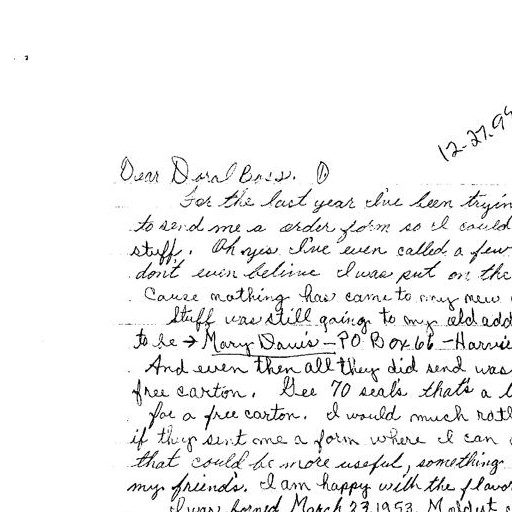 12-27-9
Dear Doral Boss. ①
For the last year I've been tryin
to send me a order form so I could
stuff. Oh yes I've even called a few
don't even believe I was put on the
Cause nothing has came to my new
Stuff was still going to my old add
to be → Mary Davis - PO Box 66 - Harris
And even then all they did send was
free carton. Gee 70 seals that's a l
for a free carton. I would much rath
if they sent me a form where I can
that could be more useful, something
my friends. I am happy with the flavor
I was borned March 23, 1953. My oldest